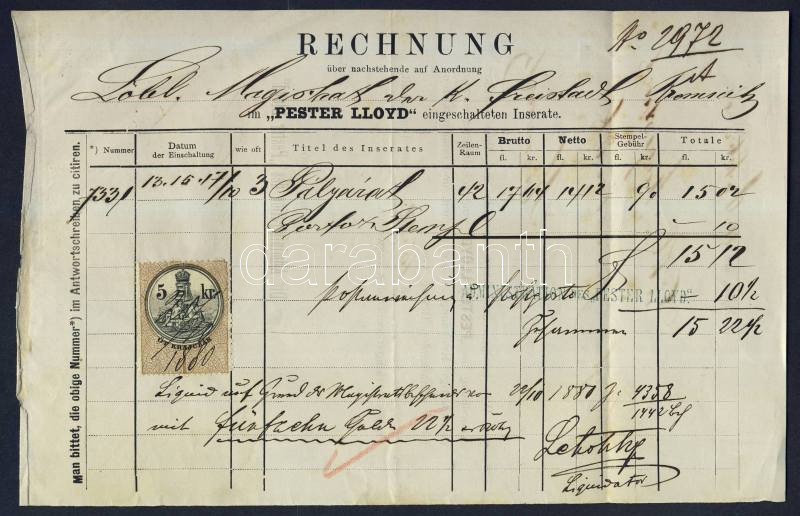 No 2972
RECHNUNG
über nachstehende auf Anordnung
Löbl. Magistrat der K. Freistadt Kremnitz
im „PESTER LLOYD“ eingeschalteten Inserate.
*) Nummer Datum der Einschaltung wie oft Titel des Inserates Zeilen-Raum Brutto fl. kr. Netto fl. kr. Stempel-Gebühr fl. kr. Totale fl. kr.
7331 13. 15. 17/10 3 Pályázat 42 90 15 02
Porto 10
15 12
ADMINISTRATION DES „PESTER LLOYD“
10½
Zusammen 15 22½
5 kr.
1880
Liquid auf Grund des 22/10 1880 Z: 4358
mit fünfzehn Guld 22½
Liquidator
Man bittet, die obige Nummer*) im Antwortschreiben zu citiren.
darabanth